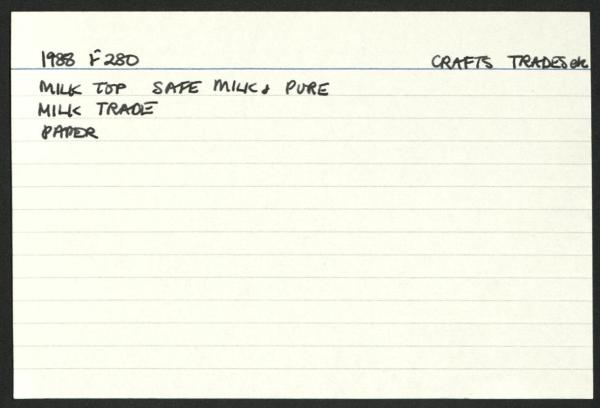 1988 F280
CRAFTS TRADES etc
MILK TOP SAFE MILK & PURE
MILK TRADE
PAPER